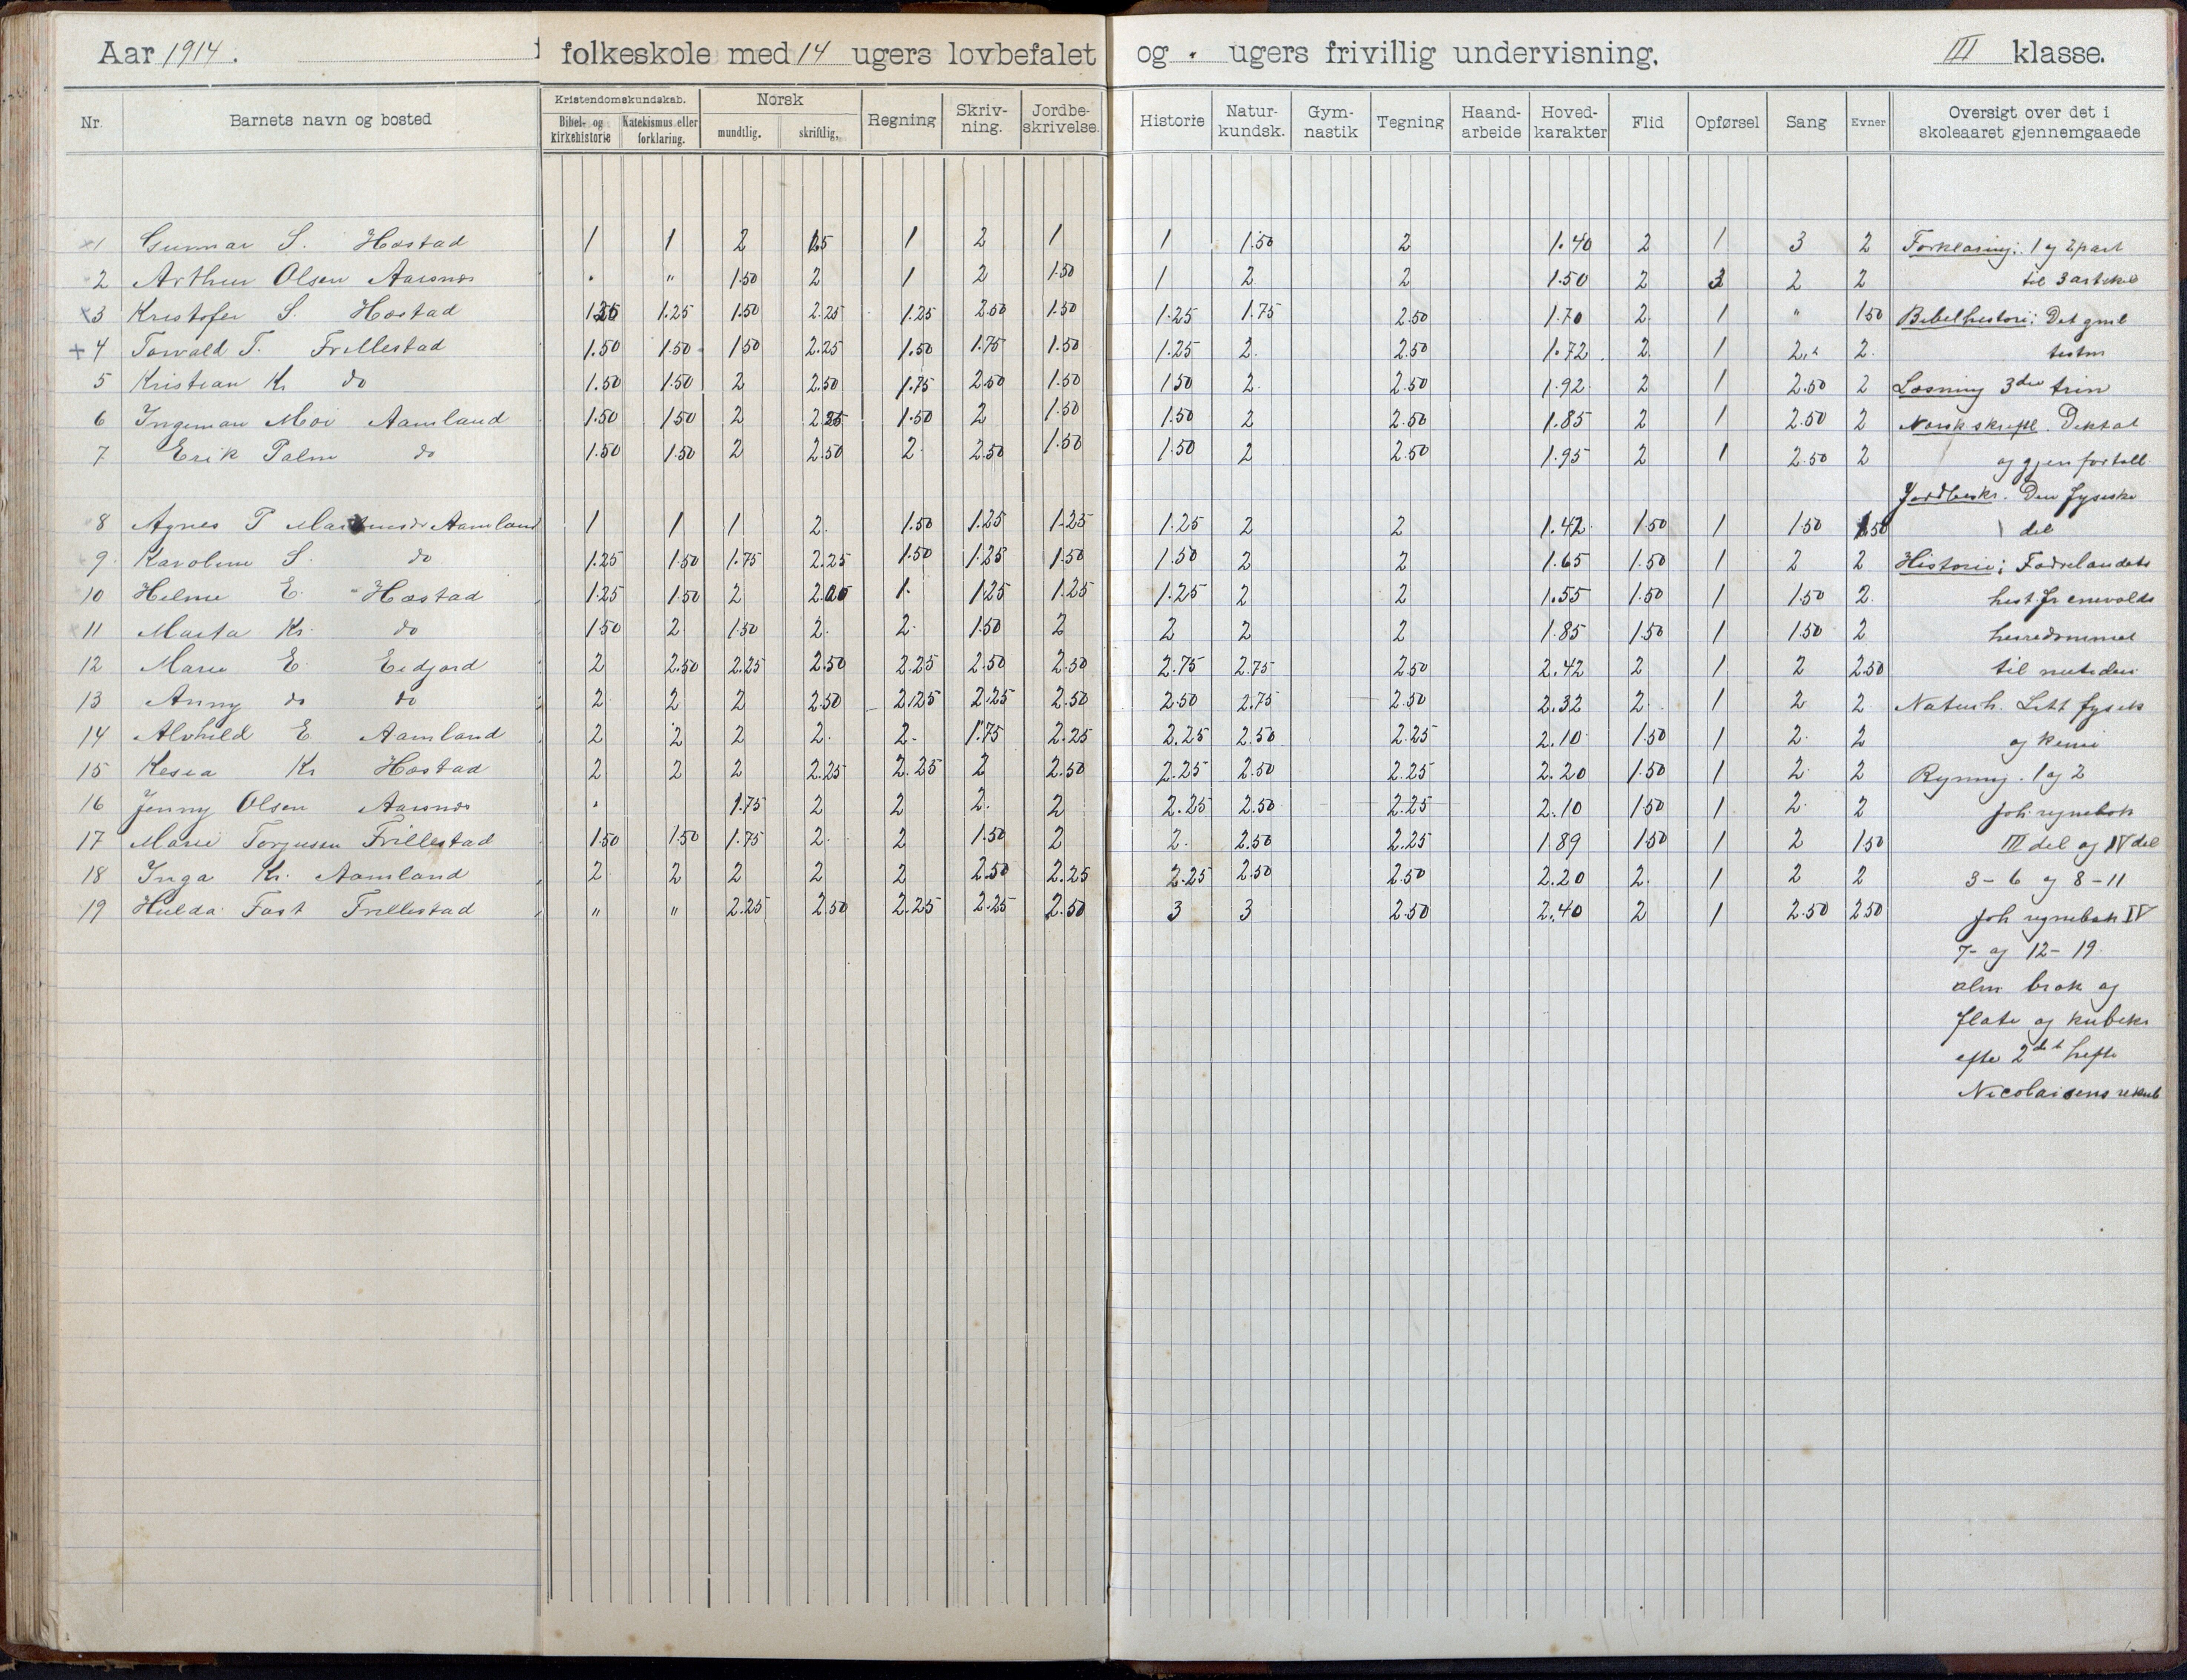 Aar 1914. i folkeskole med 14 ugers lovbefalet og . ugers frivillig undervisning. III klasse.
Nr. Barnets navn og bosted Kristendomskundskab. Bibel- og kirkehistorie Katekismus eller forklaring. Norsk mundtlig. skriftlig. Regning Skriv-ning. Jordbe-skrivelse. Historie Natur-kundsk. Gym-nastik Tegning Haand-arbeide Hoved-karakter Flid Opførsel Sang Evner Oversigt over det i skoleaaret gjennemgaaede
1 Gunnar S. Hæstad 1 1 2 1 2 1 1 1.50 2 1.40 2 1 3 2 Forklaring: 1 og 2 part
2 Arthur Olsen Aarsnes " " 1.50 2 1 2 1.50 1 2 2 1.50 2 3 2 2 til 3 artikel
3 Kristofer S. Hæstad 1.25 1.25 1.50 2.25 1.25 2.50 1.50 1.25 1.75 2.50 1.70 2 1 " 1.50 Bibelhistorie: Det gml
+ 4 Torvald T. Frillestad 1.50 1.50 1.50 2.25 1.50 1.75 1.50 1.25 2. 2.50 1.72 2 1 2 2. testm
5 Kristian Kr do 1.50 1.50 2 2.50 1.75 2.50 1.50 1.50 2. 2.50 1.92 2 1 2.50 2 Læsning 3die trin
6 Ingeman Moi Aamland 1.50 1.50 2 2.25 1.50 2 1.50 1.50 2 2.50 1.85 2 1 2.50 2 Norsk skriftl. Diktat
7 Erik Palm do 1.50 1.50 2 2.50 2 2.50 1.50 1.50 2 2.50 1.95 2 1 2.50 2 og gjenfortell.
Jordbeskr. Den fysiske
8 Agnes T Aamland 1 1 1 2. 1.50 1.25 1.25 1.25 2 2 1.42 1.50 1 1.50 1.50 del
9. Karoline S. do 1.25 1.50 1.75 2.25 1.50 1.25 1.50 1.50 2 2 1.65 1.50 1 2 2 Historie: Fædrelandets
10 Helme E. Hæstad 1.25 1.50 2 1. 1.25 1.25 1.25 2 2 1.55 1.50 1 1.50 2. hist. fr enevolds
11 Marta Kr. do 1.50 2 1.50 2. 2. 1.50 2 2 2 2 1.85 1.50 1 1.50 2 herredømmet
12 Marie E. Eidjord 2 2.50 2.25 2.50 2.25 2.50 2.50 2.75 2.75 2.50 2.42 2 1 2 2.50 til nutiden
13 Anny do do 2 2 2 2.50 2.25 2.25 2.50 2.50 2.75 2.50 2.32 2. 1 2 2 Naturh. Litt fysik
14 Alvhild E. Aamland 2 2 2 2. 2. 1.75 2.25 2.25 2.50 2.25 2.10 1.50 1 2. 2 og kemi
15 Kesia Kr Hæstad 2 2 2 2.25 2.25 2 2.50 2.25 2.50 2.25 2.20 1.50 1 2 2 Regning. 1 og 2
16 Jenny Olsen Aarsnes " 1.75 2 2 2. 2 2.25 2.50 2.25 2.10 1.50 1 2. 2 Joh. regnebok
17 Marie Torjusen Frillestad 1.50 1.50 1.75 2. 2 1.50 2 2. 2.50 2.25 1.89 1.50 1 2 1.50 III del og IV del
18 Inga Kr. Aamland 2 2 2 2 2 2.50 2.25 2.25 2.50 2.50 2.20 2. 1 2 2 3-6 og 8-11
19 Hulda Fast Frillestad " " 2.25 2.50 2.25 2.25 2.50 3 3 2.50 2.40 2 1 2.50 2.50 Joh regnebok IV
7- og 12-19.
alm brøk og
flate og kubikr
efter 2det hefte
Nicolaisens